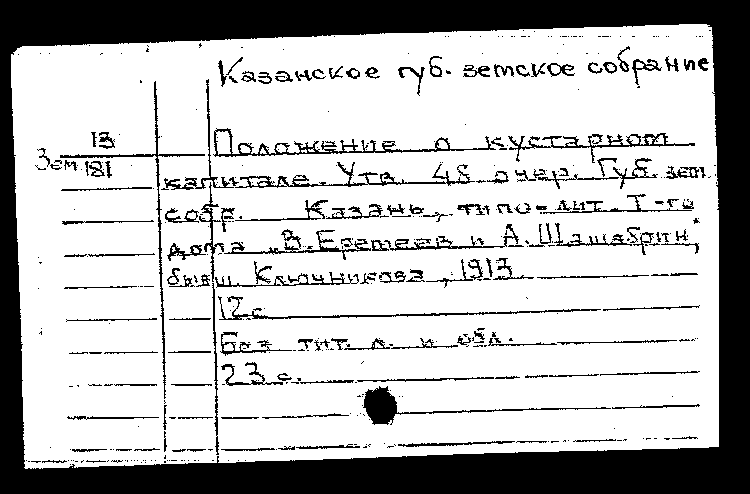 Казанское губ. земское собрание
13
Зем 181
Положение о кустарном
капитале. Утв. 48 очер. Губ. зем.
собр. Казань, типо-лит. Т-го
дома „В. Еремеев и А. Шашабрин",
бывш. Ключникова, 1913.
12 с.
Без тит. л. и обл.
23 с.